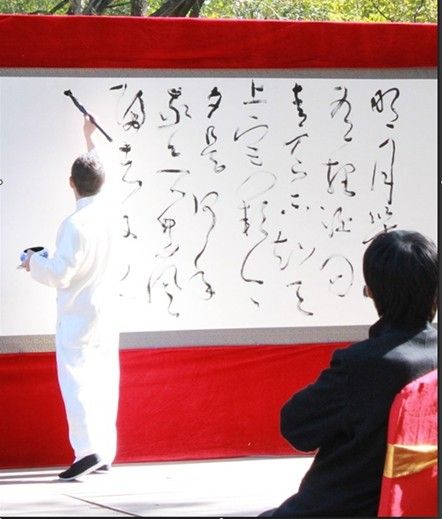 明月幾
有把酒問
青天不知天
上宮闕今
夕是何年
我欲乘風
歸去又恐